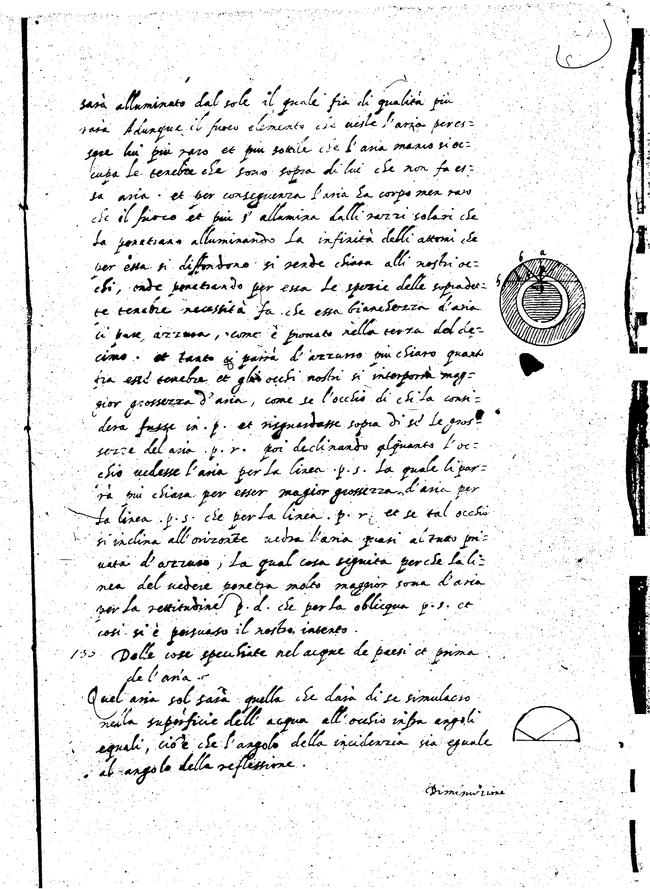 sarà alluminato dal sole il quale fia di qualità più
rara Adunque il fuoco elemento che veste l'aria per es=
sere lui più raro et più sottile che l'aria manco si oc=
cupa le tenebre che sono sopra di lui che non fa es=
sa aria . et per conseguenza l'aria ha corpo men raro
che il fuoco et più s'allumina dalli razzi solari che
la penetrano alluminando la infinità delli attomi che
per essa si diffondono si rende chiara alli nostri oc=
chi, onde penetrando per essa le spezie delle sopradet=
te tenebre necessità fa che essa bianchezza d'aria
ci pare azzurra, come è provato nella terra del de=
cimo . et tanto ci parrà d'azzurro più chiaro quant
fra esse tenebre et gli occhi nostri si interporrà mag=
gior grossezza d'aria, come se l'occhio di chi la consi=
dera fusse in .p. et risguardasse sopra di se le gros=
sezze del aria .p. r. poi declinando alquanto l'oc=
chio vedesse l'aria per la linea .p. s. la quale li par=
rà più chiara per esser magior grossezza d'aria per
la linea .p. s. che per la linea .p. r. et se tal occhio
si inclina all'orizonte vedra l'aria quasi al tutto pri=
vata d'azzurro, la qual cosa seguita perche la li=
nea del vedere penetra molto maggior soma d'aria
per la rettitudine p. d. che per la obliqua p. s. et
cosi si è persuaso il nostro intento .
Delle cose specchiate nel acque de paesi et prima
de l'aria
Quel aria sol sarà quella che darà di se simulacro
nella superficie dell' acqua all'occhio infra angoli
equali, cioè che l'angolo della incidenzia sia equale
al angolo della reflessione .
Diminuzione